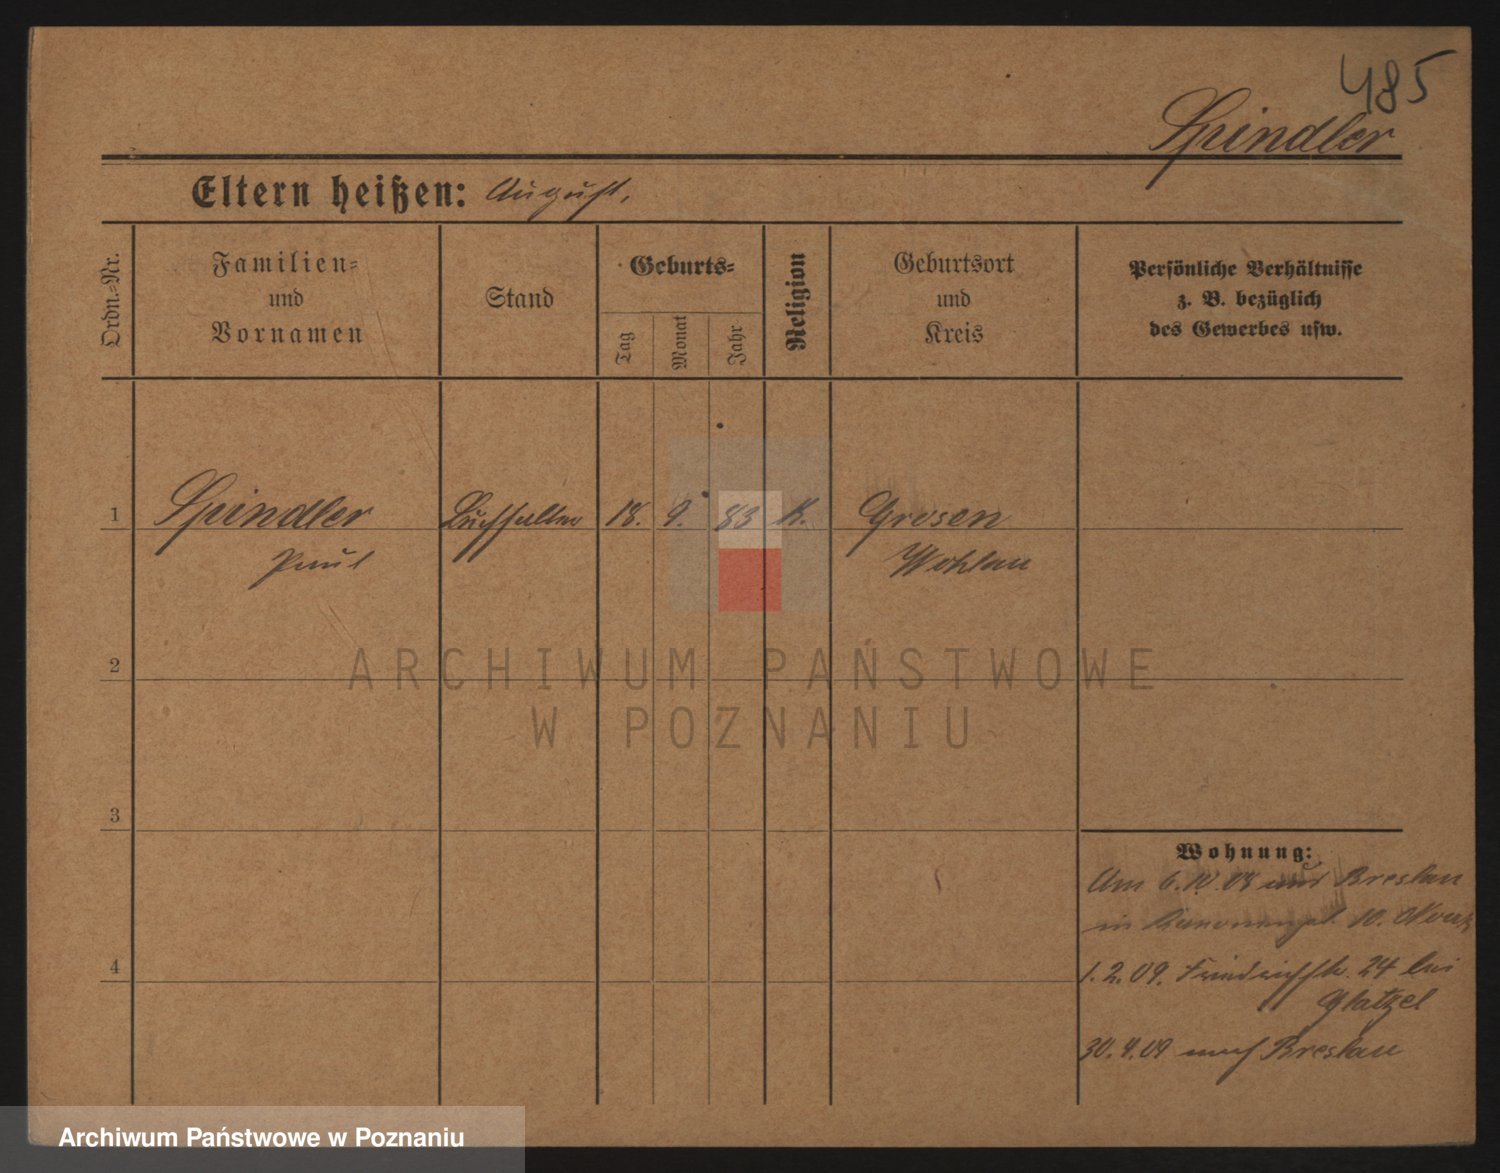 485
Spindler
Eltern heißen: August,
Ordn.-Nr.
Familien-
und
Vornamen
Stand
Geburts-
Tag
Monat
Jahr
Religion
Geburtsort
und
Kreis
Persönliche Verhältnisse
z. B. bezüglich
des Gewerbes usw.
1 Spindler Buchhalter 18. 9. 83 K. Grosen
Paul Wohlau
2
3
4
ARCHIWUM PAŃSTWOWE
W POZNANIU
Wohnung:
Am 6.10.08 aus Breslau
in 10.
1.2.09. Friedrichstr. 24 bei
Glatzel
30.4.09 nach Breslau
Archiwum Państwowe w Poznaniu